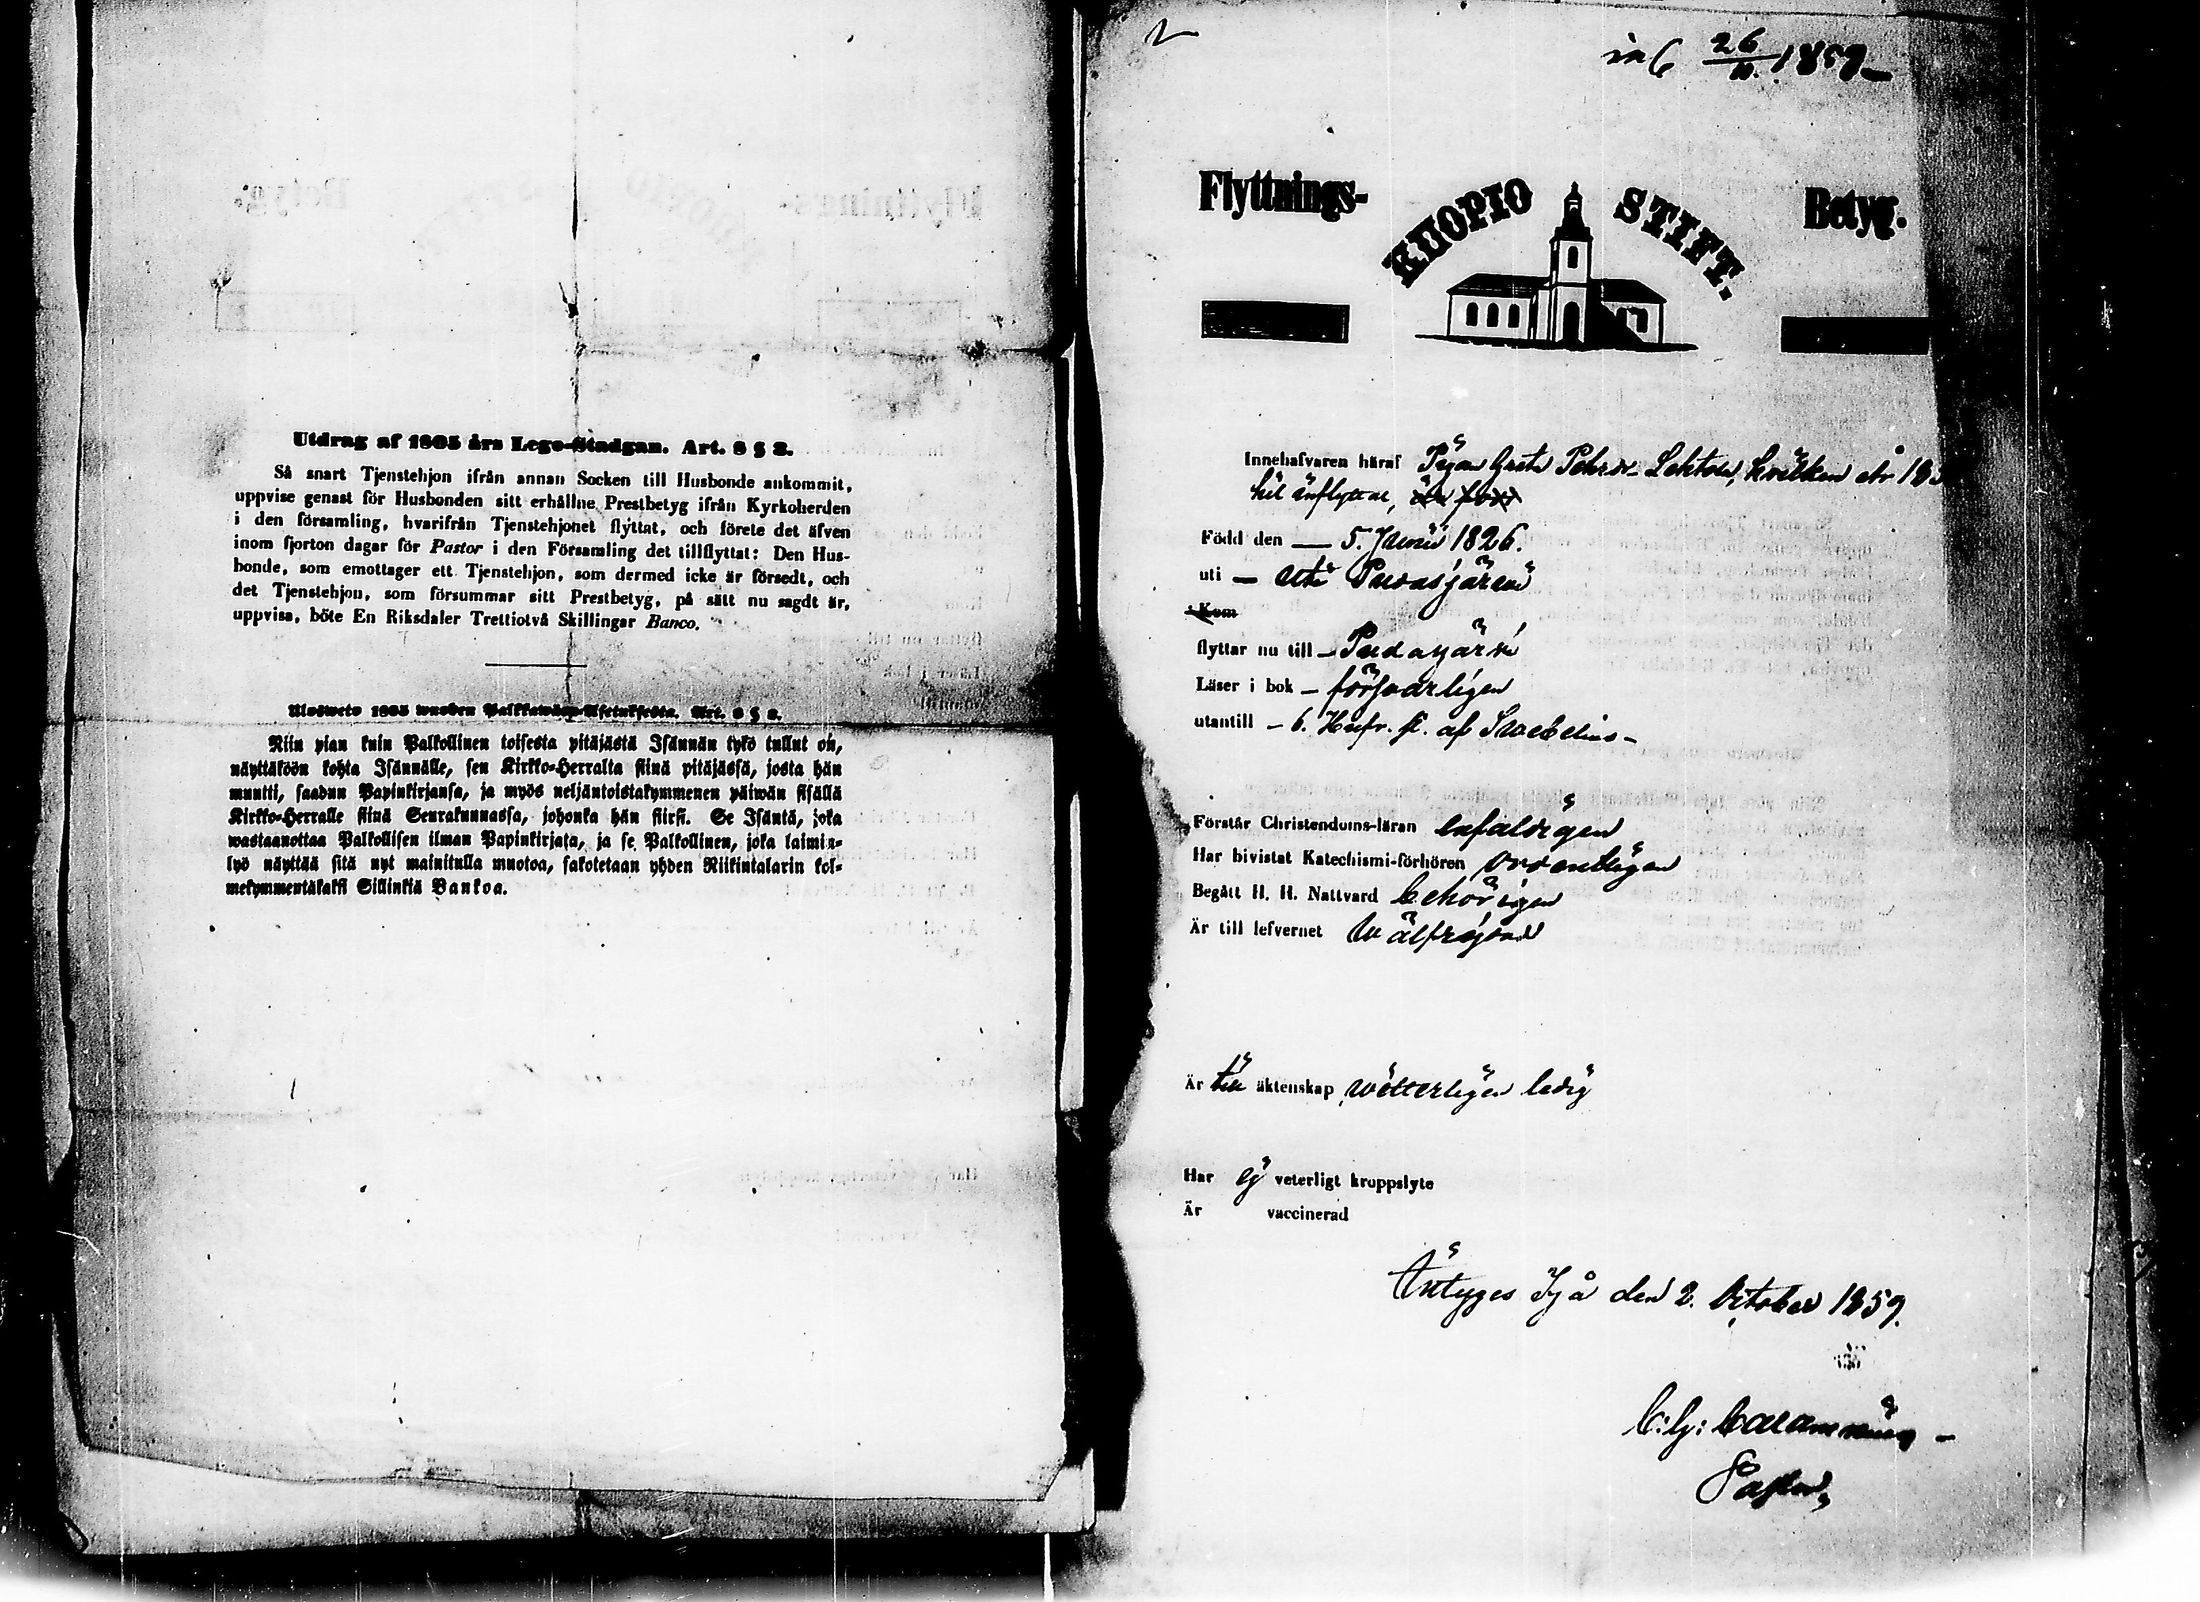 Utdrag af 1805 års Lego-Stadgan. Art. 8 § 2.
Så snart Tjenstehjon ifrån annan Socken till Husbonde ankommit,
uppvise genast för Husbonden sitt erhållne Prestbetyg ifrån Kyrkoherden
i den församling, hvarifrån Tjenstehjonet flyttat, och förete det äfven
inom fjorton dagar för Pastor i den Församling det tillflyttat: Den Hus-
bonde, som emottager ett Tjenstehjon, som dermed icke är försedt, och
det Tjenstehjon, som försummar sitt Prestbetyg, på sätt nu sagdt är,
uppvisa, böte En Riksdaler Trettiotvå Skillingar Banco.
Ulosweto 1805 wuoden Palkkawäen-Asetuksesta. Art. 8 § 2.
Niin pian kuin Palkollinen toisesta pitäjästä Isännän tykö tullut on,
näyttäköön kohta Isännälle, sen Kirkko-Herralta siinä pitäjässä, josta hän
muutti, saadun Papinkirjansa, ja myös neljäntoistakymmenen päiwän sisällä
Kirkko-Herralle siinä Seurakunnassa, johonka hän siirsi. Se Isäntä, joka
wastaanottaa Palkollisen ilman Papinkirjata, ja se Palkollinen, joka laimin-
lyö näyttää sitä nyt mainitulla muotoa, sakotetaan yhden Riikintalarin kol-
mekymmentäkaksi Sillinkiä Bankoa.
26
1859
Flyttnings- KUOPIO STIFT. Betyg.
Innehafvaren häraf Pigan Greta Pehrsdr Lehto, hvilken år 185
hit inflyttat, är född
Född den — 5. Junii 1826.
uti — uti Pudasjärvi
Kom
flyttar nu till — Pudasjärvi
Läser i bok — försvarligen
utantill — 6. Hufv. st. af Svebelius —
Förstår Christendoms-läran enfaldigen
Har bivistat Katechismi-förhören ordentligen
Begått H. H. Nattvard behörigen
Är till lefvernet wälfrejdad
Är till äktenskap wetterligen ledig
Har ej veterligt kroppslyte
Är vaccinerad
Intyges Ijå den 2. October 1859.
Pastor,